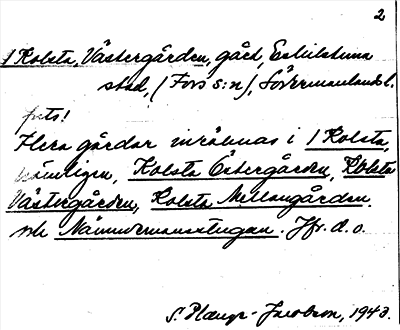 2
1 Kolsta, Västergården, gård, Eskilstuna
stad, (Fors s:n), Södermanlands l.
forts!
Flera gårdar inräknas i 1 Kolsta,
nämligen, Kolsta Östergården, Kolsta
Västergården, Kolsta Mellangården
och Nämndemansstugan. Jfr. d. o.
S. Jacobson, 1943.